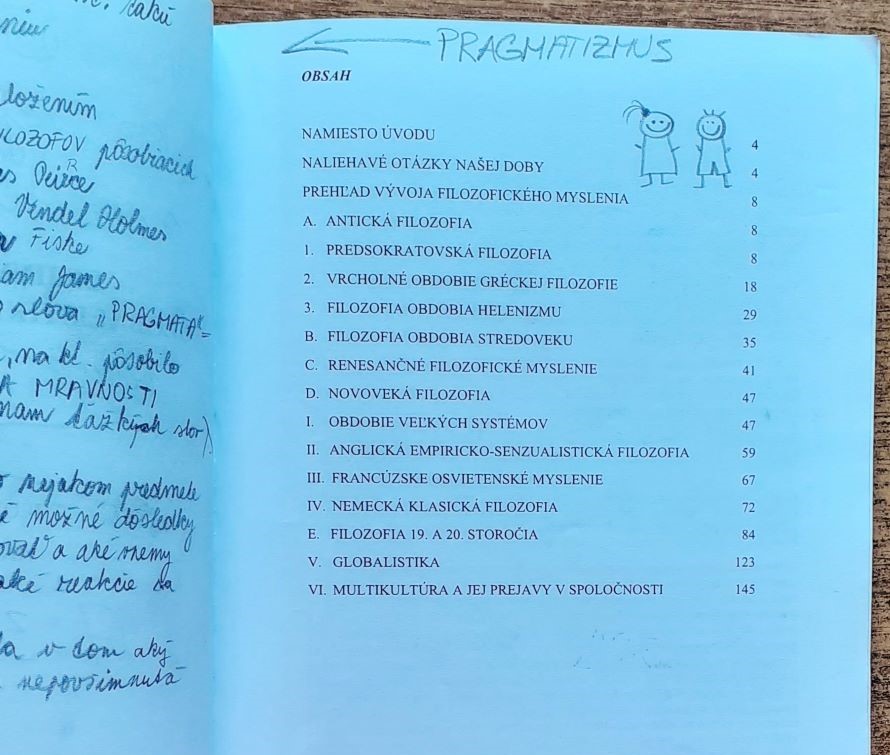 . takú
ložením
FILOZOFOV pôsobiacich
es Peirce
R
Vendel Holmes
Fiske
iam James
slova „PRAGMATA“=
, na kt. pôsobilo
A MRAVNOSTI
nam ťažkých slov)
nejakom predmete
é možné dôsledky
ovať a aké vnemy
aké reakcie na
v tom aký
nepovšimnutá
PRAGMATIZMUS
OBSAH
NAMIESTO ÚVODU 4
NALIEHAVÉ OTÁZKY NAŠEJ DOBY 4
PREHĽAD VÝVOJA FILOZOFICKÉHO MYSLENIA 8
A. ANTICKÁ FILOZOFIA 8
1. PREDSOKRATOVSKÁ FILOZOFIA 8
2. VRCHOLNÉ OBDOBIE GRÉCKEJ FILOZOFIE 18
3. FILOZOFIA OBDOBIA HELENIZMU 29
B. FILOZOFIA OBDOBIA STREDOVEKU 35
C. RENESANČNÉ FILOZOFICKÉ MYSLENIE 41
D. NOVOVEKÁ FILOZOFIA 47
I. OBDOBIE VEĽKÝCH SYSTÉMOV 47
II. ANGLICKÁ EMPIRICKO-SENZUALISTICKÁ FILOZOFIA 59
III. FRANCÚZSKE OSVIETENSKÉ MYSLENIE 67
IV. NEMECKÁ KLASICKÁ FILOZOFIA 72
E. FILOZOFIA 19. A 20. STOROČIA 84
V. GLOBALISTIKA 123
VI. MULTIKULTÚRA A JEJ PREJAVY V SPOLOČNOSTI 145